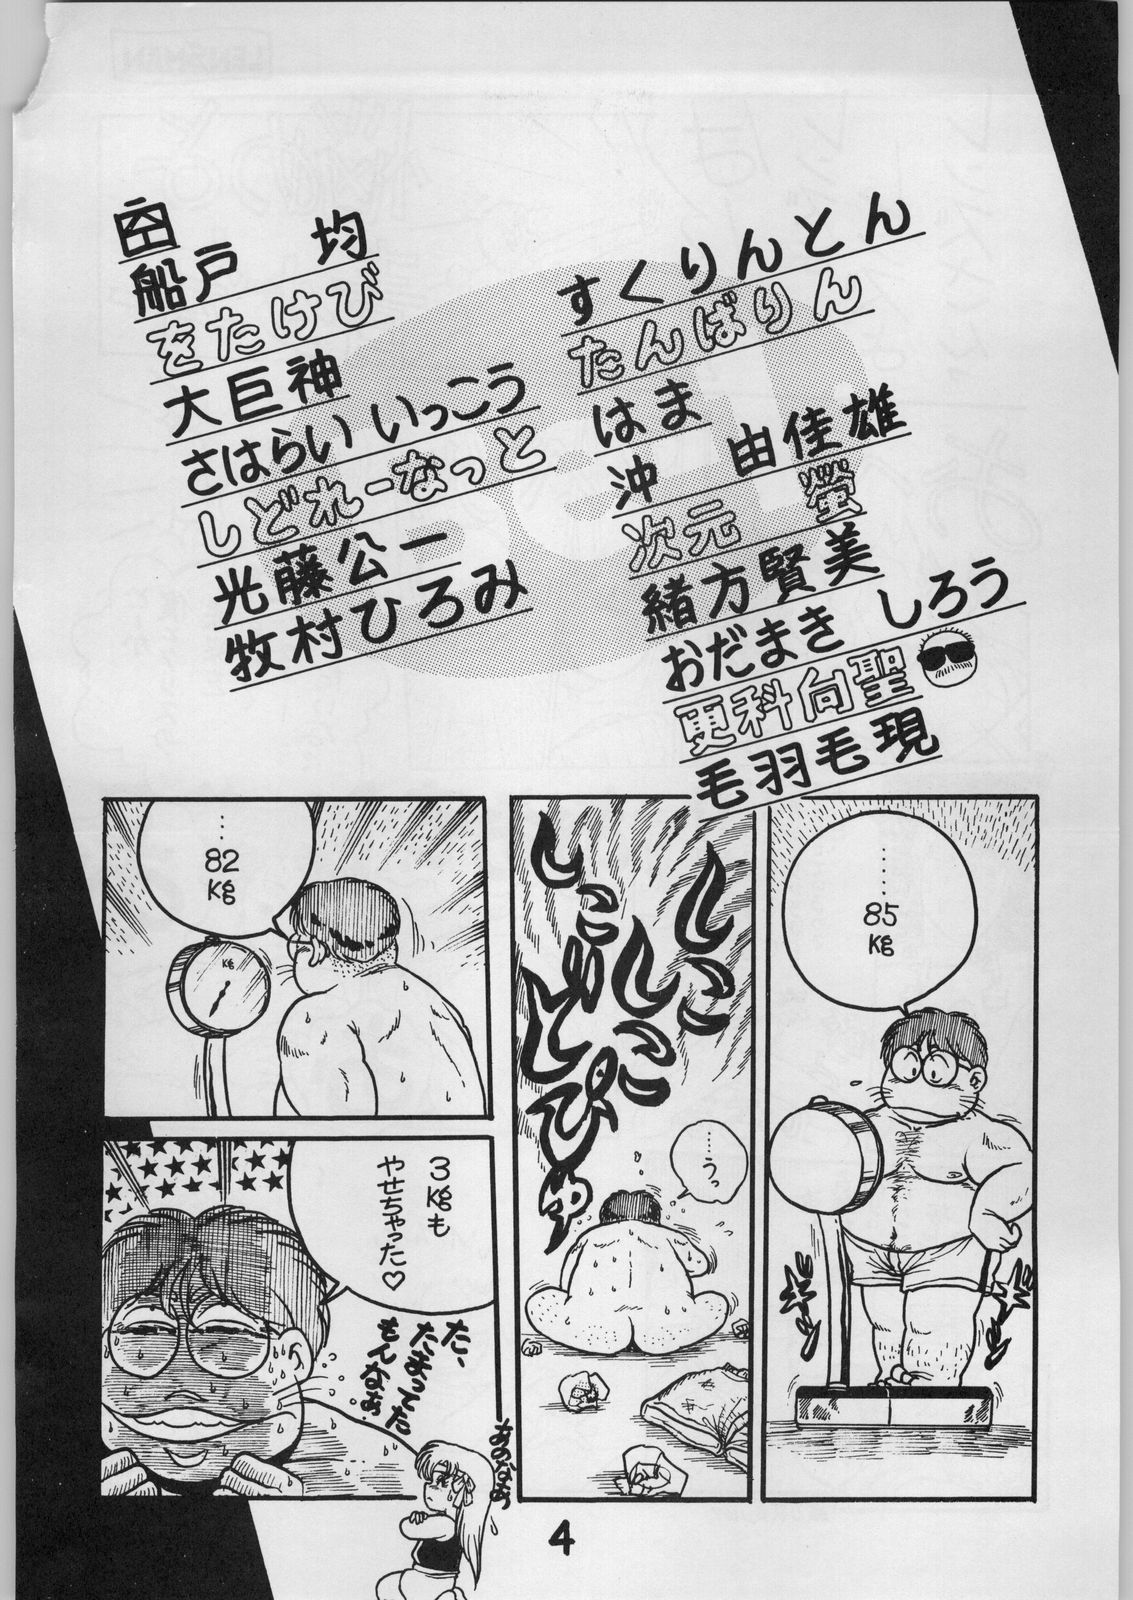 すくりんとん
たんばりん
はま
沖 由佳雄
次元 螢
緒方賢美
おだまき しろう
更科向聖
毛羽毛現
船戸 均
をたけび
大巨神
さはらい いっこう
しどれーなっと
光藤公一
牧村ひろみ
………
85
kg
しこ
しこ
しこ
どぴゅ
…うっ
…
82
kg
3kgも
やせちゃった♡
た、
たまってた
もんなぁ
あのなぁ
4